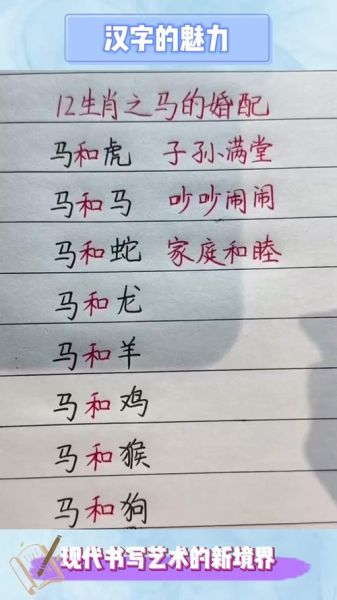 汉字的魅力
12生肖之马的婚配
马和虎 子孙满堂
马和马 吵吵闹闹
马和蛇 家庭和睦
马和龙
马和羊
马和鸡
马和猴
马和狗
现代书写艺术的新境界